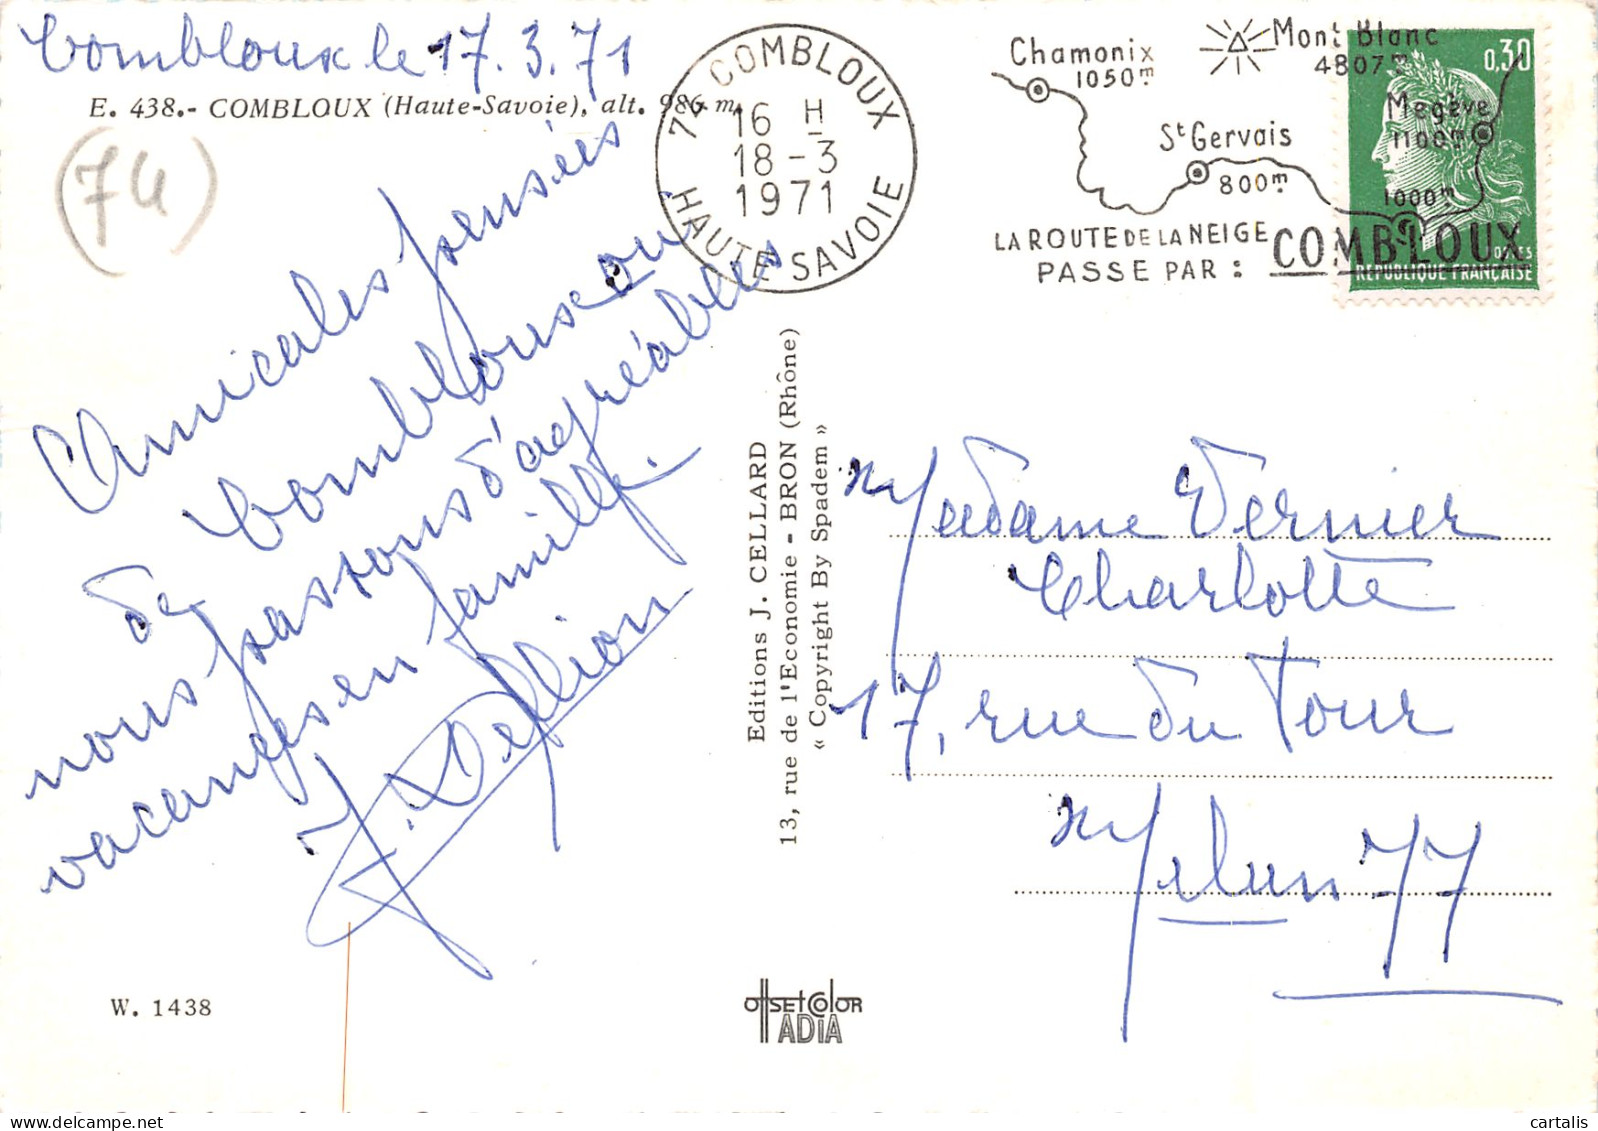 Combloux le 17.3.71
E. 438.- COMBLOUX (Haute-Savoie), alt. 986 m.
(74)
Amicales pensées
de Combloux où
nous passons d'agréables
vacances en famille.
J. Deflion
W. 1438
74 COMBLOUX
16 H
18-3
1971
HAUTE-SAVOIE
Chamonix
1050m
Mont Blanc
4807m
Megève
1100m
St Gervais
800m
1000m
LA ROUTE DE LA NEIGE
PASSE PAR : COMBLOUX
0,30
POSTES
REPUBLIQUE FRANÇAISE
Editions J. CELLARD
13, rue de l'Economie - BRON (Rhône)
« Copyright By Spadem »
OffSEt COlOR
ADiA
Madame Vernier
Charlotte
17, rue du Tour
Melun 77
cartalis